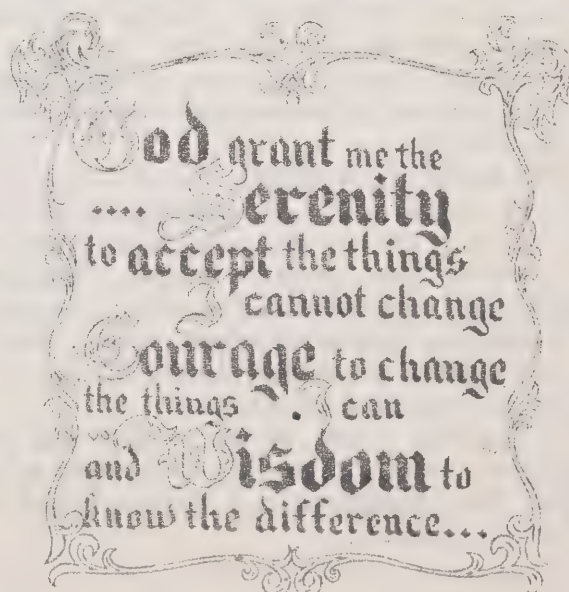 God grant me the
.... Serenity
to accept the things
I cannot change
Courage to change
the things I can
and Wisdom to
know the difference...